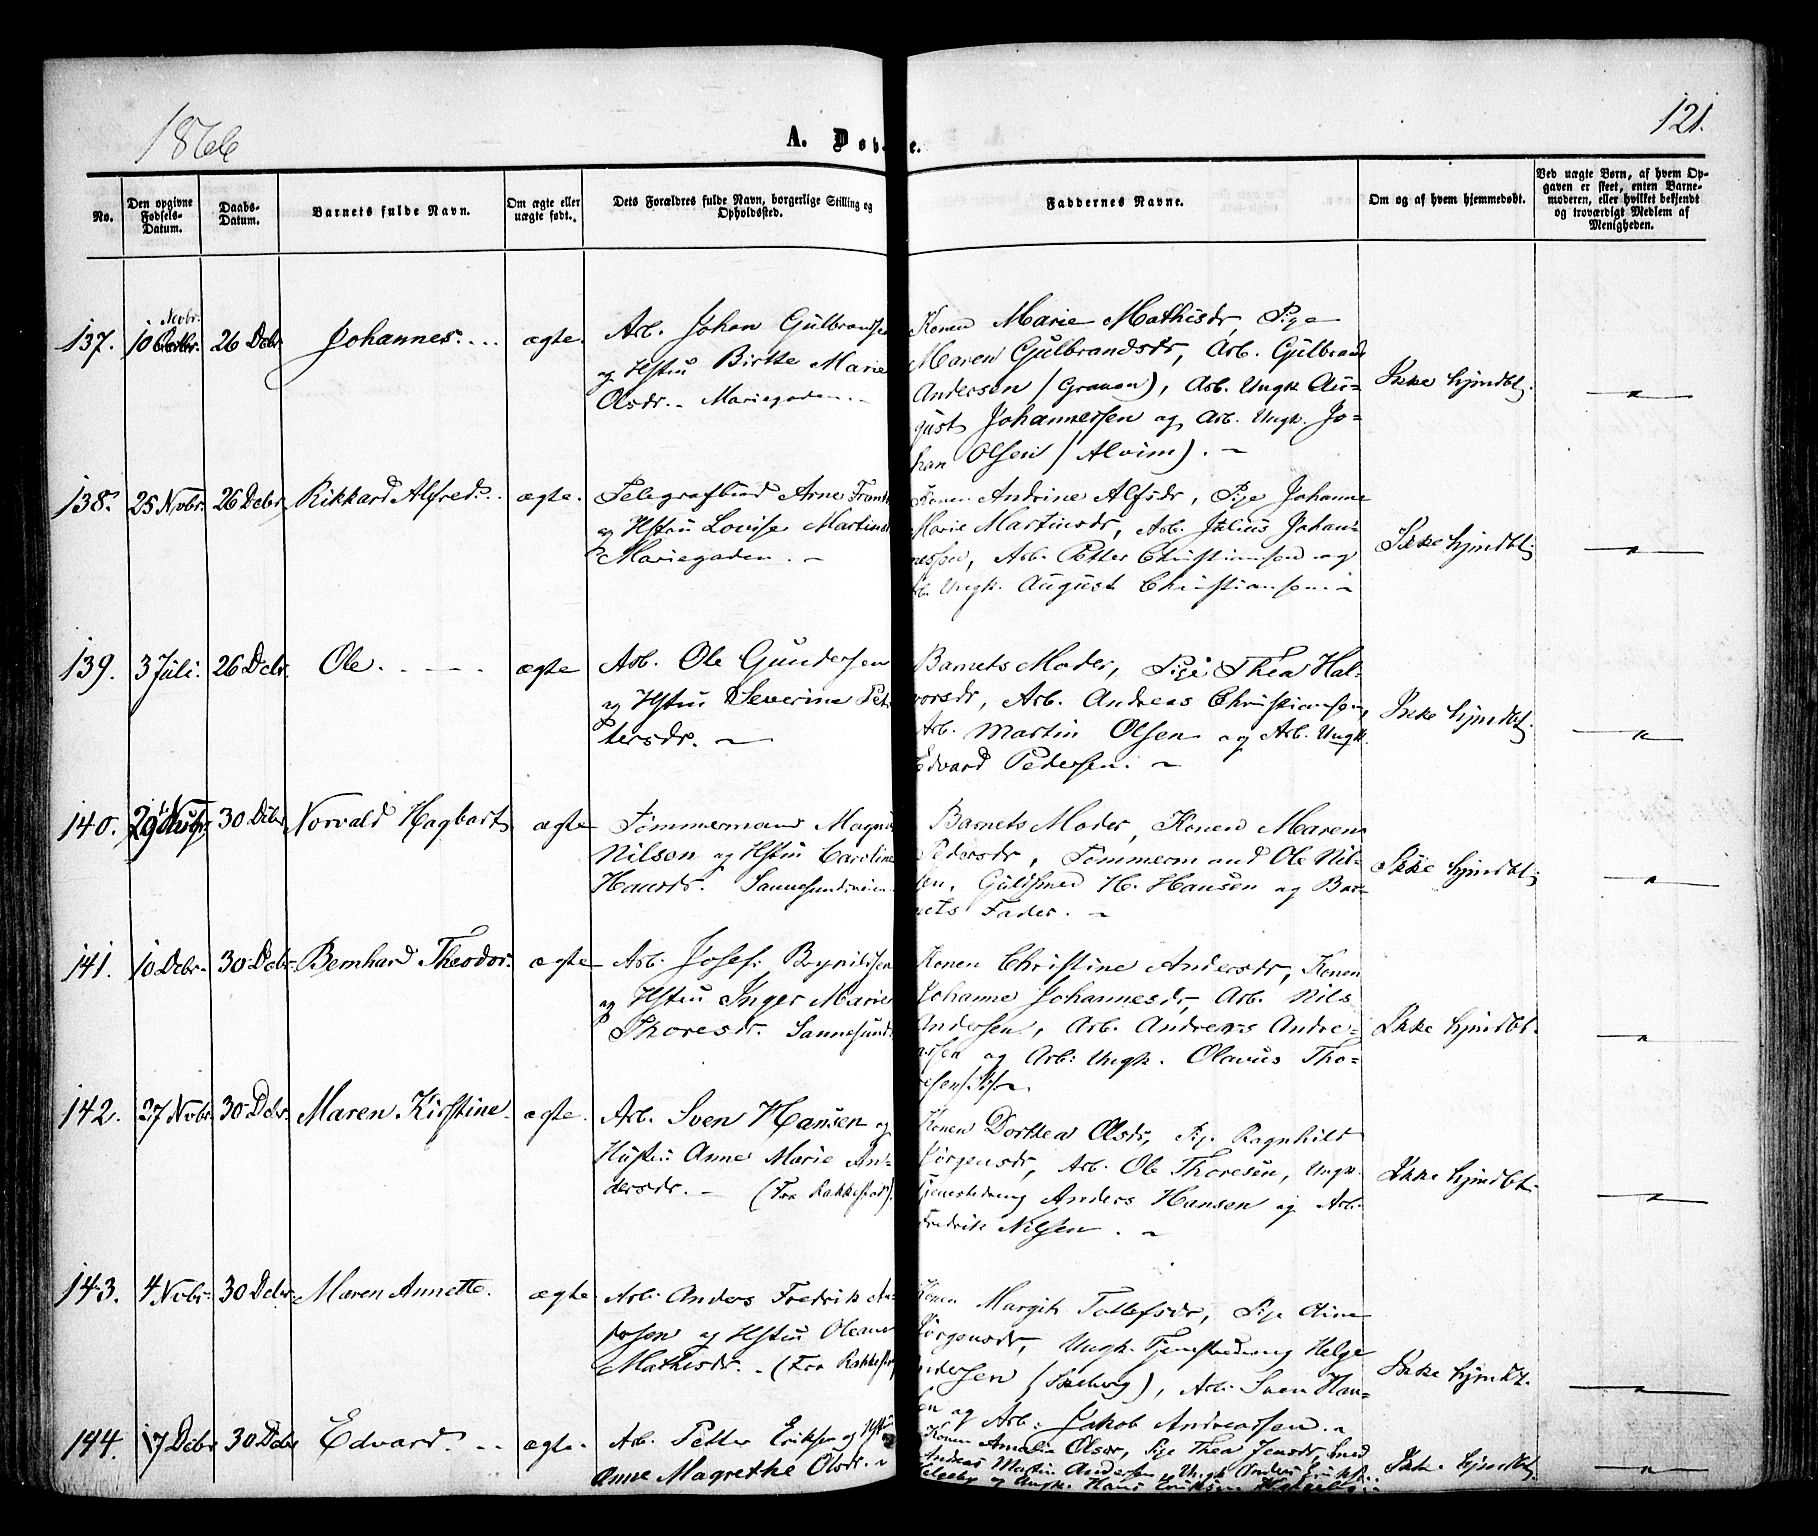 1866
A. Døbte.
121.
No.
Den opgivne Fødsels-Datum.
Daabs-Datum.
Barnets fulde Navn.
Om ægte eller uægte født.
Dets Forældres fulde Navn, borgerlige Stilling og Opholdssted.
Faddernes Navne.
Om og af hvem hjemmedøbt.
Ved uægte Børn, af hvem Opgaven er skeet, enten Barnemoderen, eller hvilket bekjendt og troværdigt Medlem af Menigheden.
137. 10 Novbr. 26 Debr Johannes. ægte.
Arb. Johan Gulbrandsen
og Hstru Birthe Marie
Olsdr. - Mariegaden. -
Konen Marie Mathisdr, Pige
Maren Gulbrandsdr, Arb. Gulbrand
Andersen (Graven), Arb. Ungk. Au-
gust Johannessen og Arb. Ungk. Jo-
han Olsen (Alvim). -
Ikke hjmdbt.
138. 25 Novbr. 26 Debr Rikkard Alfred. ægte.
Telegrafbud Arne
og Hstru Lovise Martinsd
Mariegaden. -
Konen Andrine Alfsdr, Pige Johanne
Marie Martinsdr, Arb. Julius Johan-
nessen, Arb. Petter Christiansen og
Arb. Ungk. August Christiansen. -
Ikke hjmdbt.
139. 3 Juli. 26 Debr. Ole. - - - ægte
Arb. Ole Gundersen
og Hstru Severine Pet-
tersdr. -
Barnets Moder, Pige Thea Hal-
vorsdr, Arb. Andreas Christiansen,
Arb. Martin Olsen og Arb. Ungk.
Edvard Pedersen. -
Ikke hjmdbt.
140. 29 30 Debr Norvald Hagbart ægte
Tømmermand Magnus
Nilson og Hstru Caroline
Hansdr. Sannesundveien
Barnets Moder, Konen Maren
Pedersdr, Tømmermand Ole Nil-
sen, Guldsmed H. Hansen og Bar-
nets Fader. -
Ikke hjmdbt.
141. 10 Debr. 30 Debr. Bernhard Theodor. ægte
Arb. Josef Brynildsen
og Hstru Inger Marie
Thoresdr. Sannesund.
Konen Christine Andersdr, Konen
Johanne Johannesdr, Arb. Nils
Andersen, Arb. Andreas Andre-
assen og Arb. Ungk. Olavus Tho-
resen.
Ikke hjmdbt.
142. 27 Novbr 30 Debr. Maren Kirstine. ægte.
Arb. Sven Hansen og
Hustru Anne Marie An-
dersdr. - (Fra Rakkestad).
Konen Dorthea Olsdr, Pige Ragnhild
Jørgensdr, Arb. Ole Thoresen, Ungk.
Tjenestedreng Anders Hansen og Arb.
Fredrik Nilsen. -
Ikke hjmdbt.
143. 4 Novbr. 30 Debr. Maren Annette. ægte
Arb. Anders Fredrik An-
dersen og Hstru Oleane
Mathisdr. - (Fra Rakkestad
Konen Margit Tollefsdr, Pige Oline
Jørgensdr, Ungk. Tjenestedreng Helge
Andersen (Skeberg), Arb. Sven Han-
sen og Arb. Jakob Andreassen. -
Ikke hjmdbt.
144. 17 Debr 30 Debr Edvard. - ægte.
Arb. Petter Eriksen og Hstru
Anne Magrethe Olsdr. -
Konen Amalia Olsdr, Pige Thea Jensdr, Smed
Andreas Martin Andersen, Ungk. Anders
og Ungk. Hans Eriksen
Ikke hjmdbt.